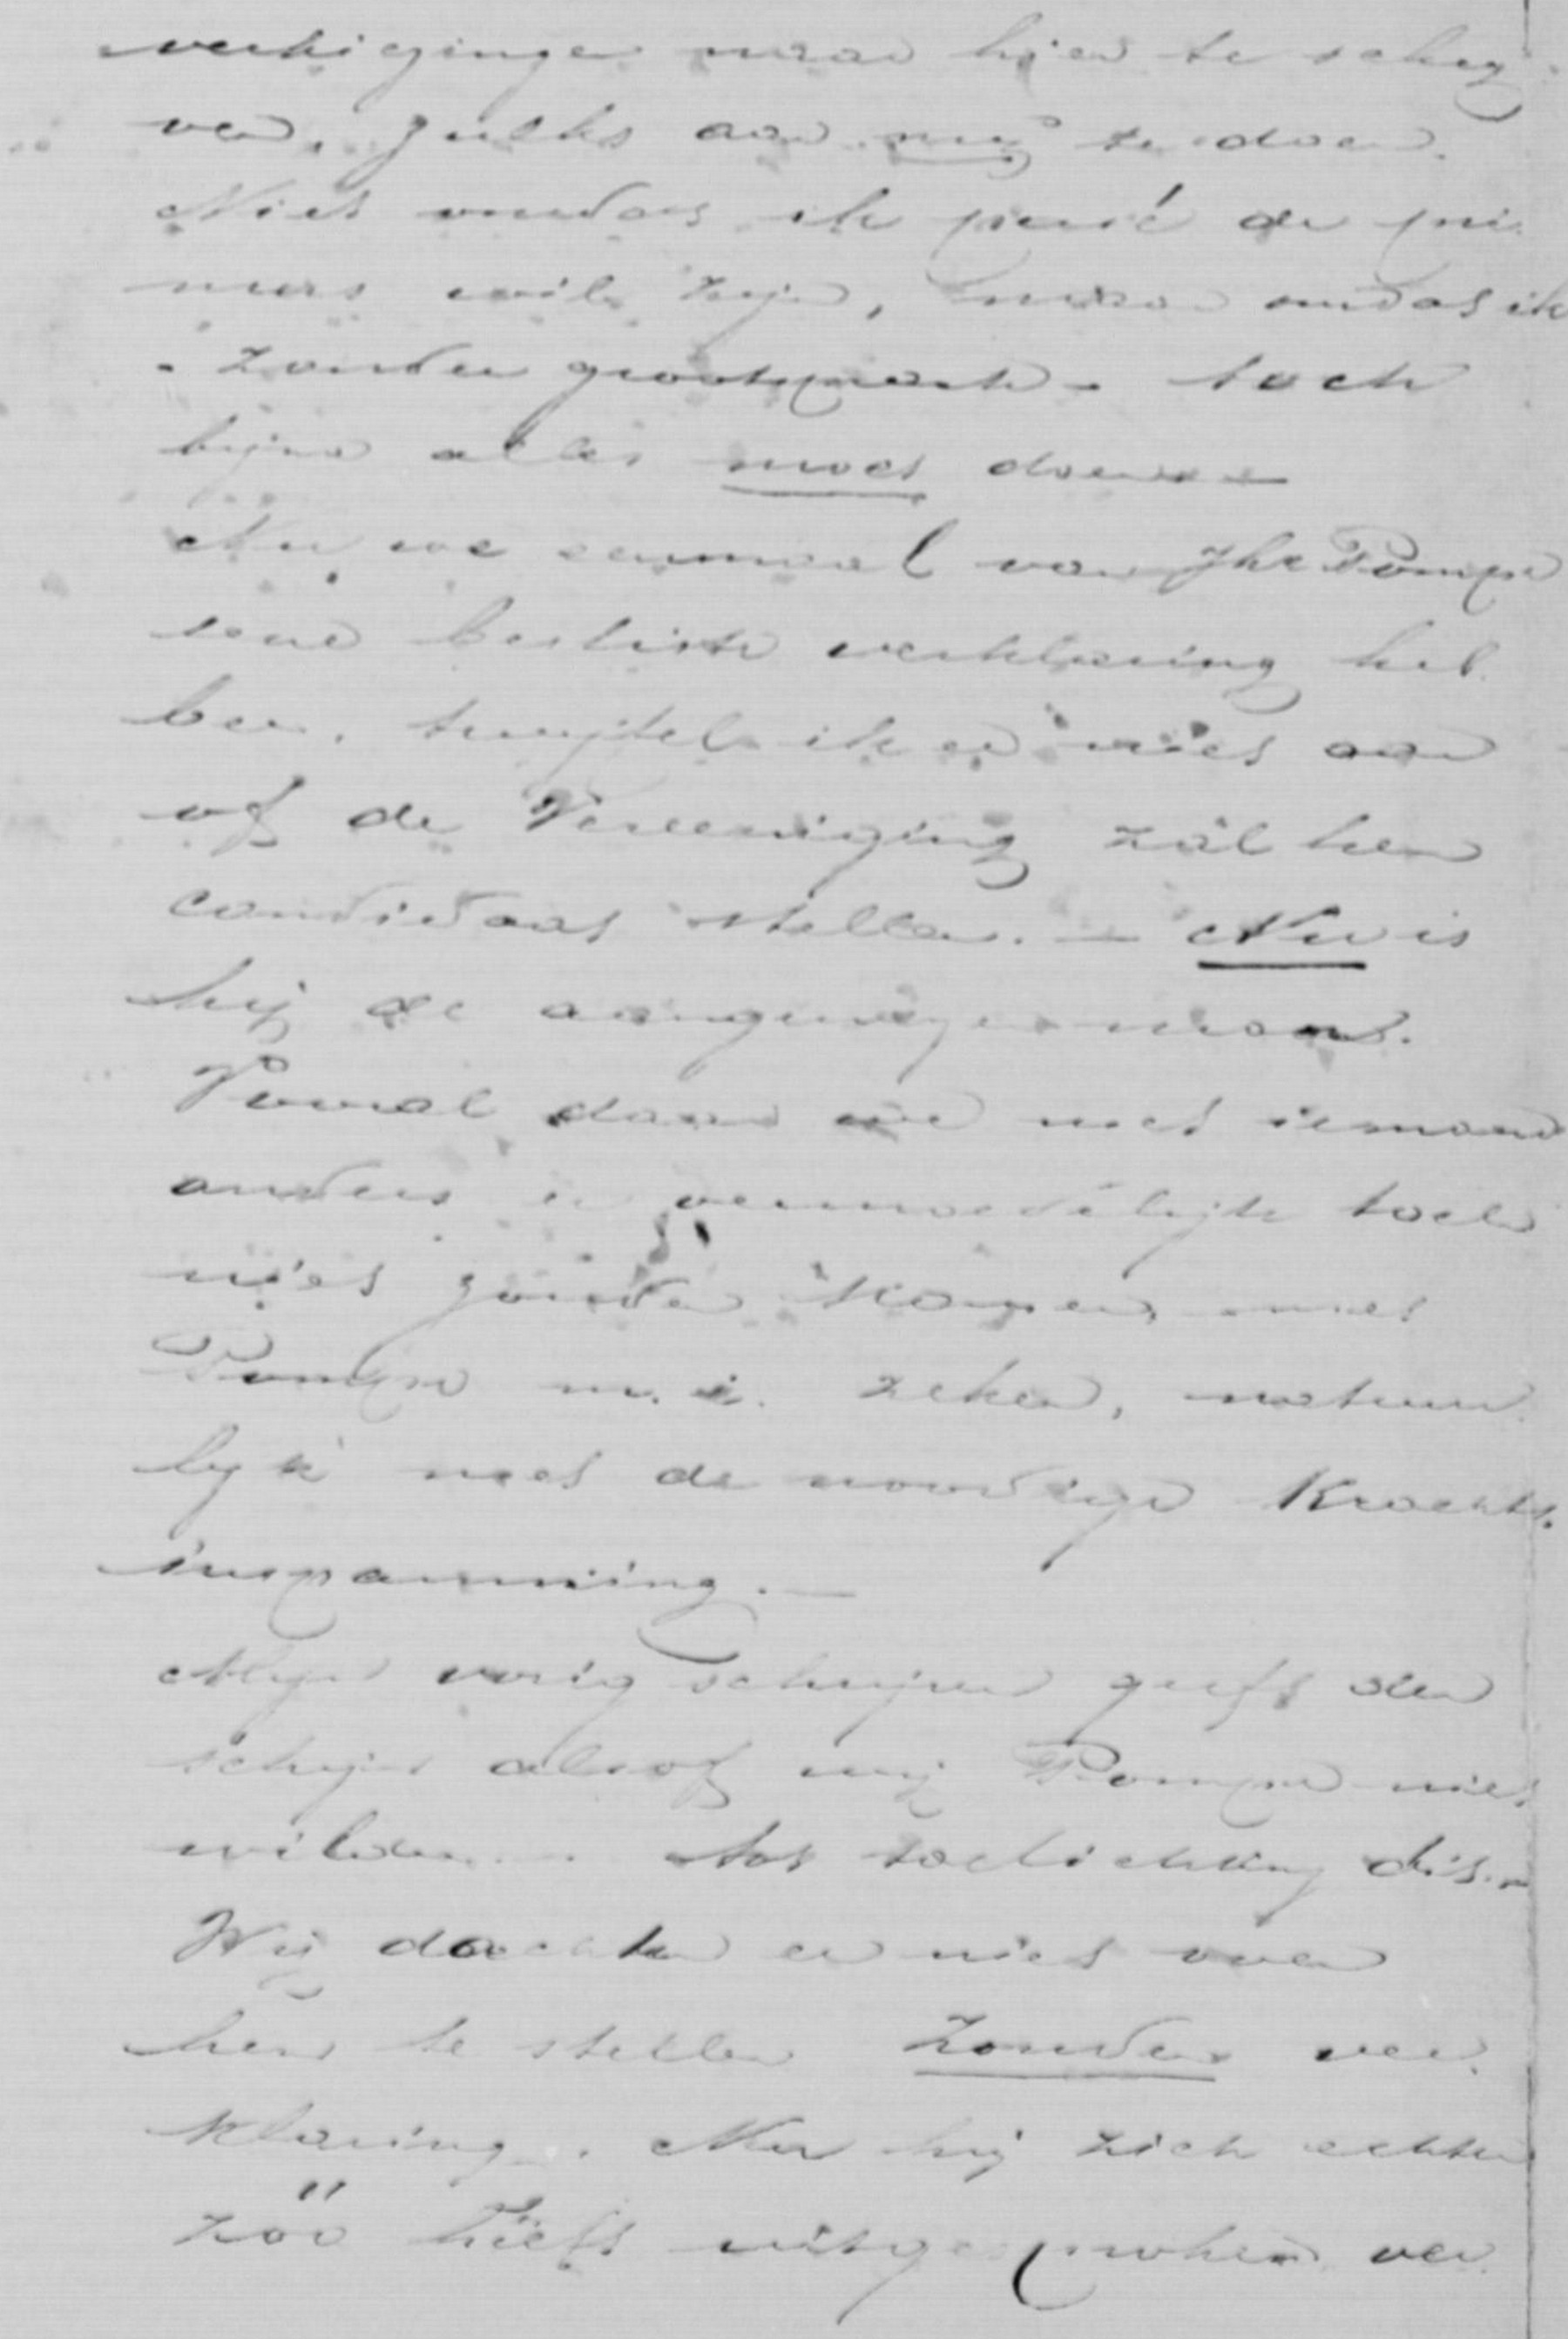 verkiezingen naar hier te schrij-
ven, zulks aan mij te doen.
Niet omdat ik persé de pri-
mus wil zijn, maar omdat ik
- zonder grootspraak - toch
bijna alles moet doen. -
Nu we eenmaal van Jhr Pompe
eene besliste verklaring heb-
ben, twijfel ik er niet aan
of de Vereeniging zal hem
candidaat stellen. - Nu is
hij de aangewezen man.
Vooral daar we met iemand
anders er vermoedelijk toch
niet zouden komen, met
Pompe m.i. zeker, natuur-
lijk met de noodige krachts-
inspanning. -
Mijn vorig schrijven geeft den
schijn alsof wij Pompe niet
wilden. - Tot toelichting dit. -
Wij dachten er niet over
hem te stellen zonder ver-
klaring. Nu hij zich echter
zóó heeft uitgesproken ver-